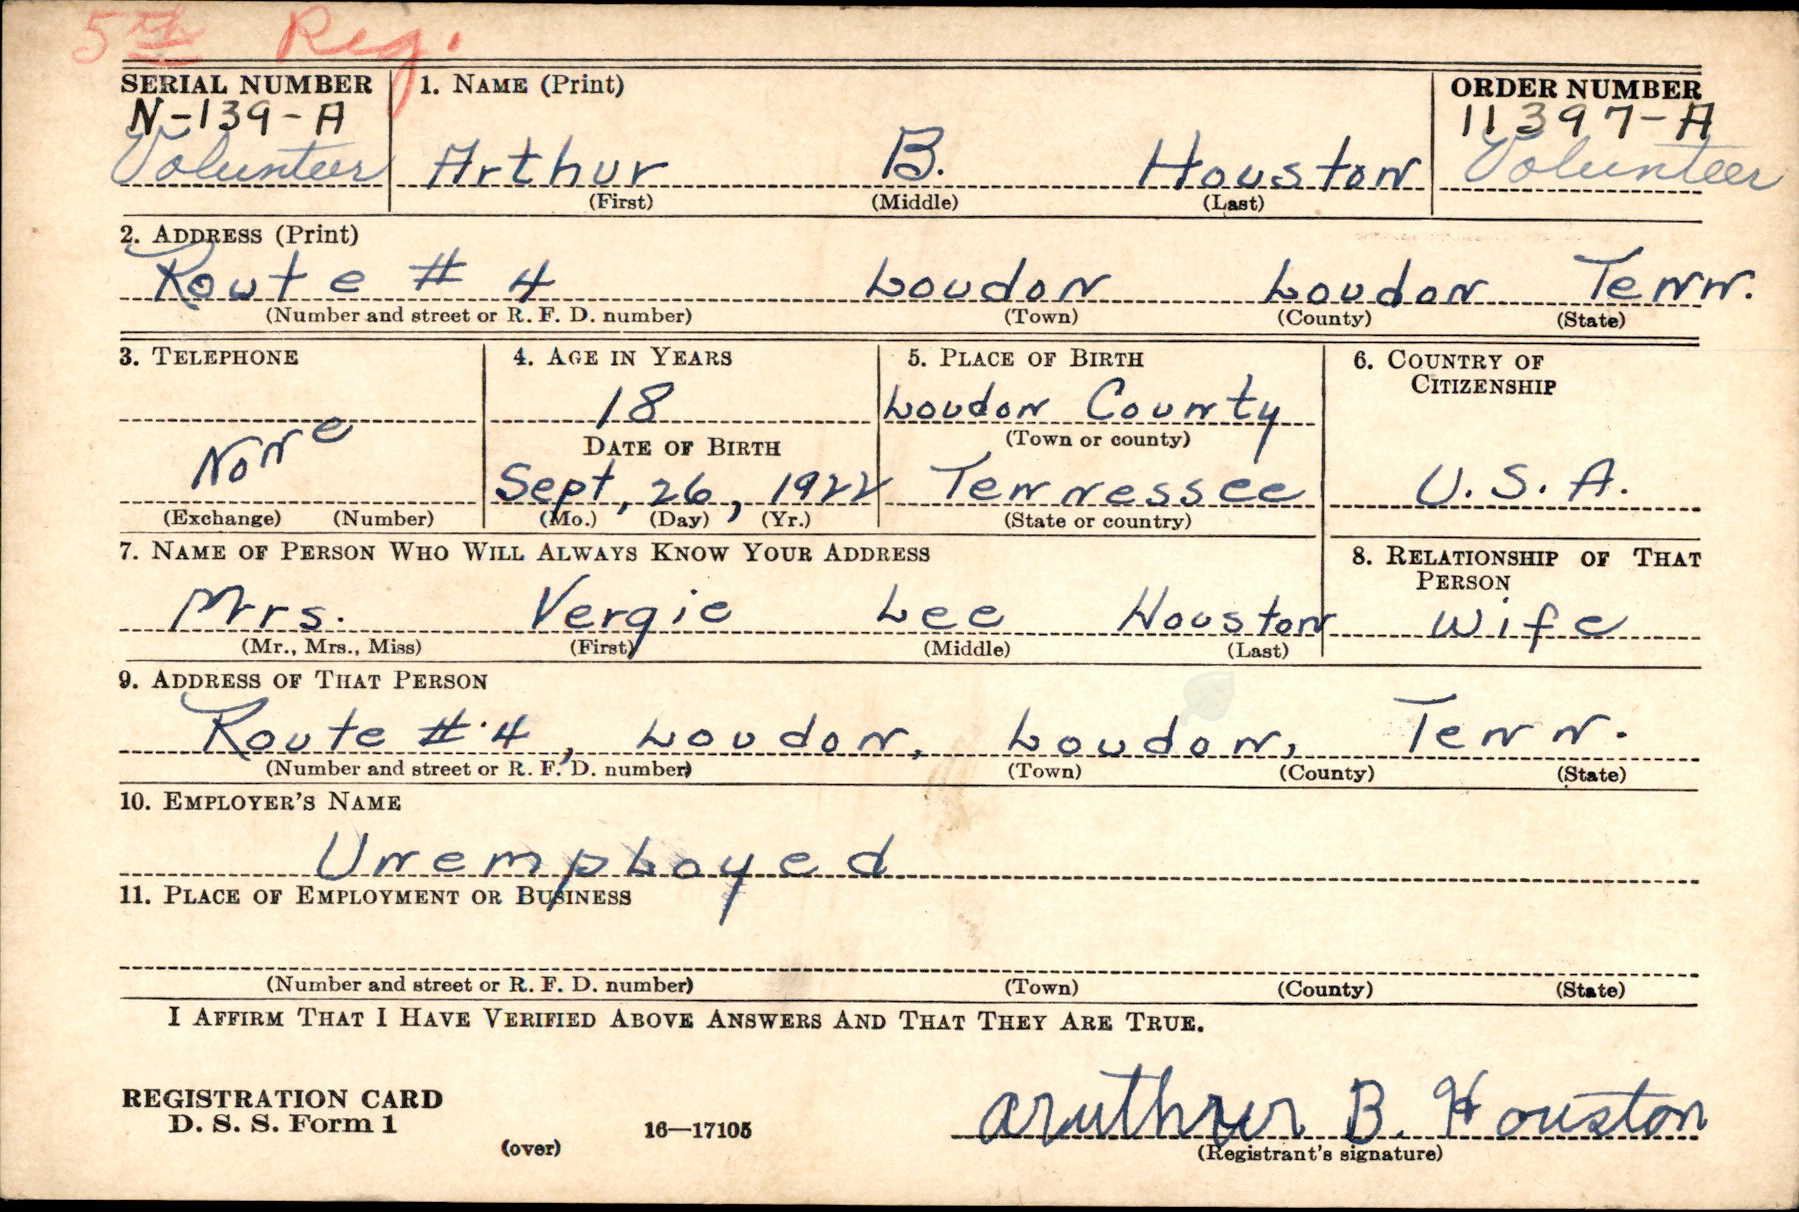 5th Reg.
SERIAL NUMBER 1. NAME (Print) ORDER NUMBER
N-139-A 11397-A
Volunteer Arthur B. Houston Volunteer
(First) (Middle) (Last)
2. ADDRESS (Print)
Route # 4 Loudon Loudon Tenn.
(Number and street or R. F. D. number) (Town) (County) (State)
3. TELEPHONE 4. AGE IN YEARS 5. PLACE OF BIRTH 6. COUNTRY OF
CITIZENSHIP
18 Loudon County
DATE OF BIRTH (Town or county)
None Sept, 26, 1922 Tennessee U.S.A.
(Exchange) (Number) (Mo.) (Day) (Yr.) (State or country)
7. NAME OF PERSON WHO WILL ALWAYS KNOW YOUR ADDRESS 8. RELATIONSHIP OF THAT
PERSON
Mrs. Vergie Lee Houston Wife
(Mr., Mrs., Miss) (First) (Middle) (Last)
9. ADDRESS OF THAT PERSON
Route # 4, Loudon, Loudon, Tenn.
(Number and street or R. F. D. number) (Town) (County) (State)
10. EMPLOYER'S NAME
Unemployed
11. PLACE OF EMPLOYMENT OR BUSINESS
(Number and street or R. F. D. number) (Town) (County) (State)
I AFFIRM THAT I HAVE VERIFIED ABOVE ANSWERS AND THAT THEY ARE TRUE.
REGISTRATION CARD
D. S. S. Form 1
(over) 16—17105 Aruthur B. Houston
(Registrant's signature)